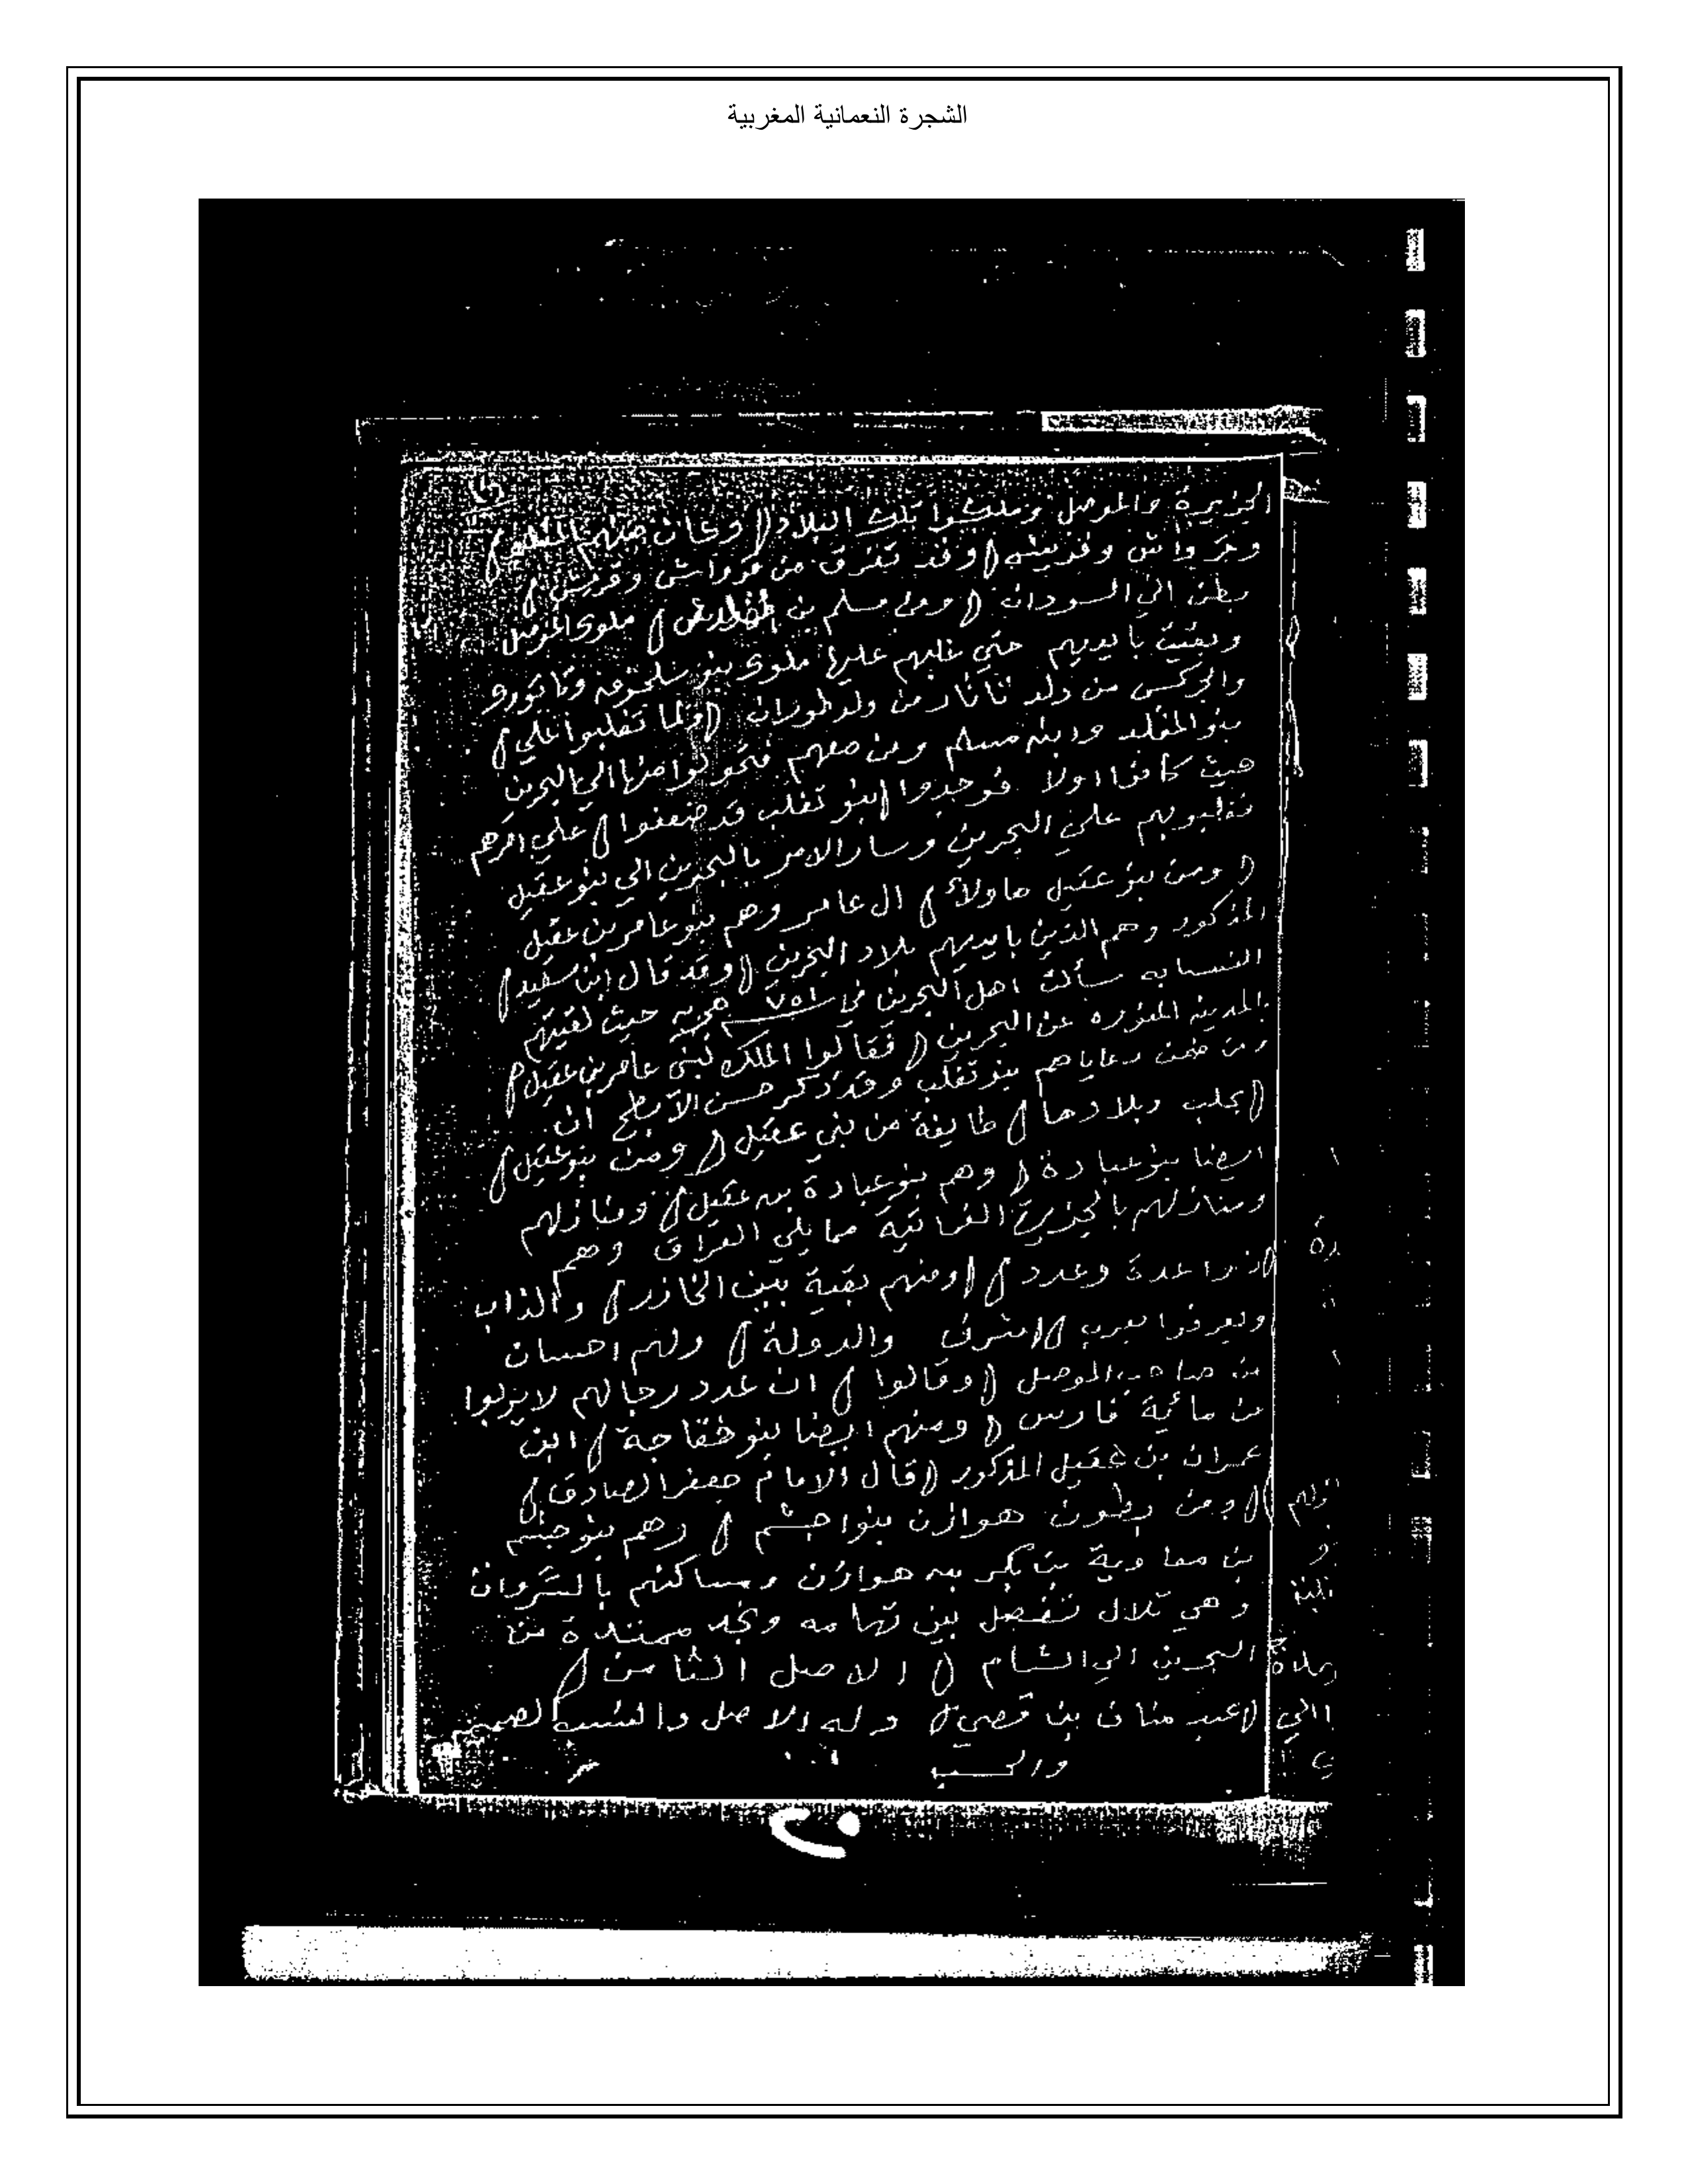 الشجرة النعمانية المغربية
الجزيرة والموصل وملكوا تلك البلاد ( وكان منهم المقلد )
وقد تفرق من قرواش وقريش )
بطن الي السودان ( ومن مسلم بن ) ملوك الموصل
وبقيت بايديهم حتي غلبهم عليها ملوك بنو
من ولد تاتار من ولد طوران ( ولما تغلبوا علي )
بنو المقلد وابنه مسلم ومن معهم فتحولوا منها الي البحرين
حيث كانوا اولا فوجدوا ( بنو تغلب قد ضعفوا ) علي امرهم
فغلبوهم علي البحرين وسار الامر بالبحرين الي بنو عقيل
( ومن بنو عقيل هاولاء ) ال عامر وهم بنو عامر بن عقيل
المذكور وهم الذين بايديهم بلاد البحرين ( وقد قال ابن سعيد )
النسابه سألت اهل البحرين في ٧٥١ هجريه حيث لقيتهم
بالمدينه المنوره عن البحرين ( فقالوا الملك لبني عامر بن عقيل )
ومن ضمن رعاياهم بنو تغلب وقد ذكر حسن الابطح ان
( بحلب وبلادها ) طايفة من بني عقيل ( ومن بنو عقيل )
ايضا بنو عبادة ( وهم بنو عبادة بن عقيل ) ومنازلهم
ومنازلهم بالجزيرة الفراتية مما يلي العراق وهم
ذوا عدة وعدد ) ( ومنهم بقية بين الخازر ) والذاب
ويعرفوا بعرب ( شرف والدولة ) ولهم احسان
من صاحب الموصل ( وقالوا ) ان عدد رجالهم لا يزلوا
من مائية فارس ( ومنهم ايضا بنو خفاجة ) ابن
عمران بن عقيل المذكور ( قال الامام جعفر الصادق )
( ومن بطون هوازن بنوا جشم ) وهم بنو جشم
بن معاوية بن بكر بن هوازن ومساكنهم بالسروات
وهي تلال تفصل بين تهامه ونجد ممتدة من
البحرين الي الشام ( الاصل الثامن )
( عبد مناف بن قصي ) وله الاصل والنسب
والحسب